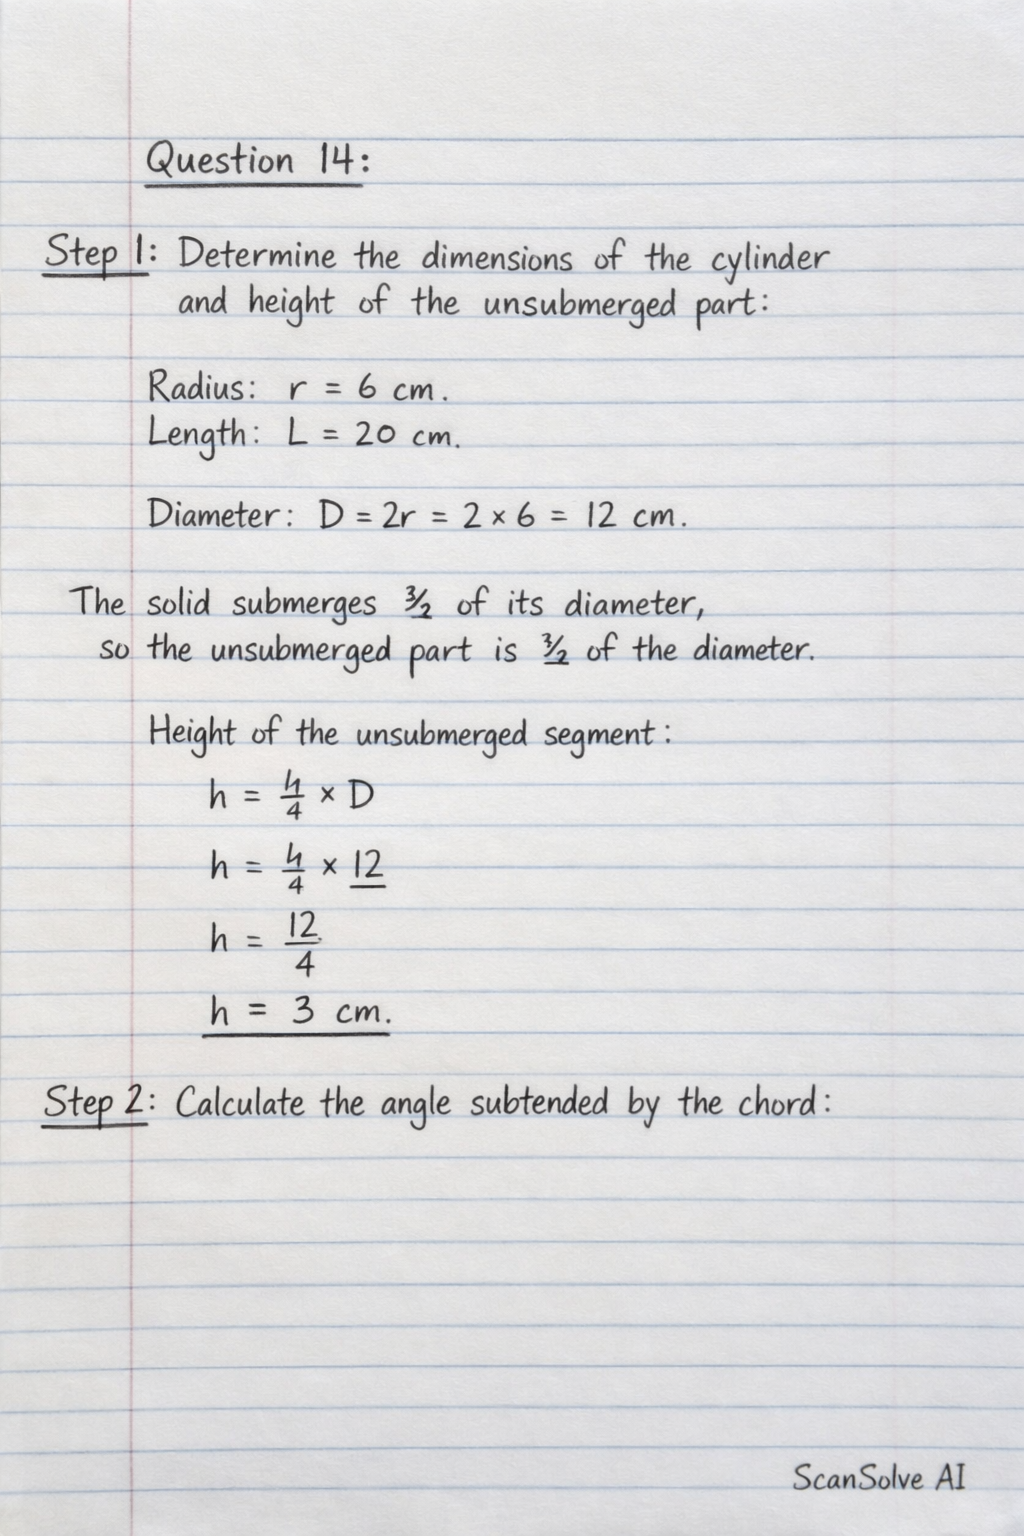 Question 14:
Step 1: Determine the dimensions of the cylinder
and height of the unsubmerged part:
Radius: r = 6 cm.
Length: L = 20 cm.
Diameter: D = 2r = 2 × 6 = 12 cm.
The solid submerges 3/2 of its diameter,
so the unsubmerged part is 3/2 of the diameter.
Height of the unsubmerged segment:
h = h/4 × D
h = h/4 × 12
h = 12/4
h = 3 cm.
Step 2: Calculate the angle subtended by the chord:
ScanSolve AI